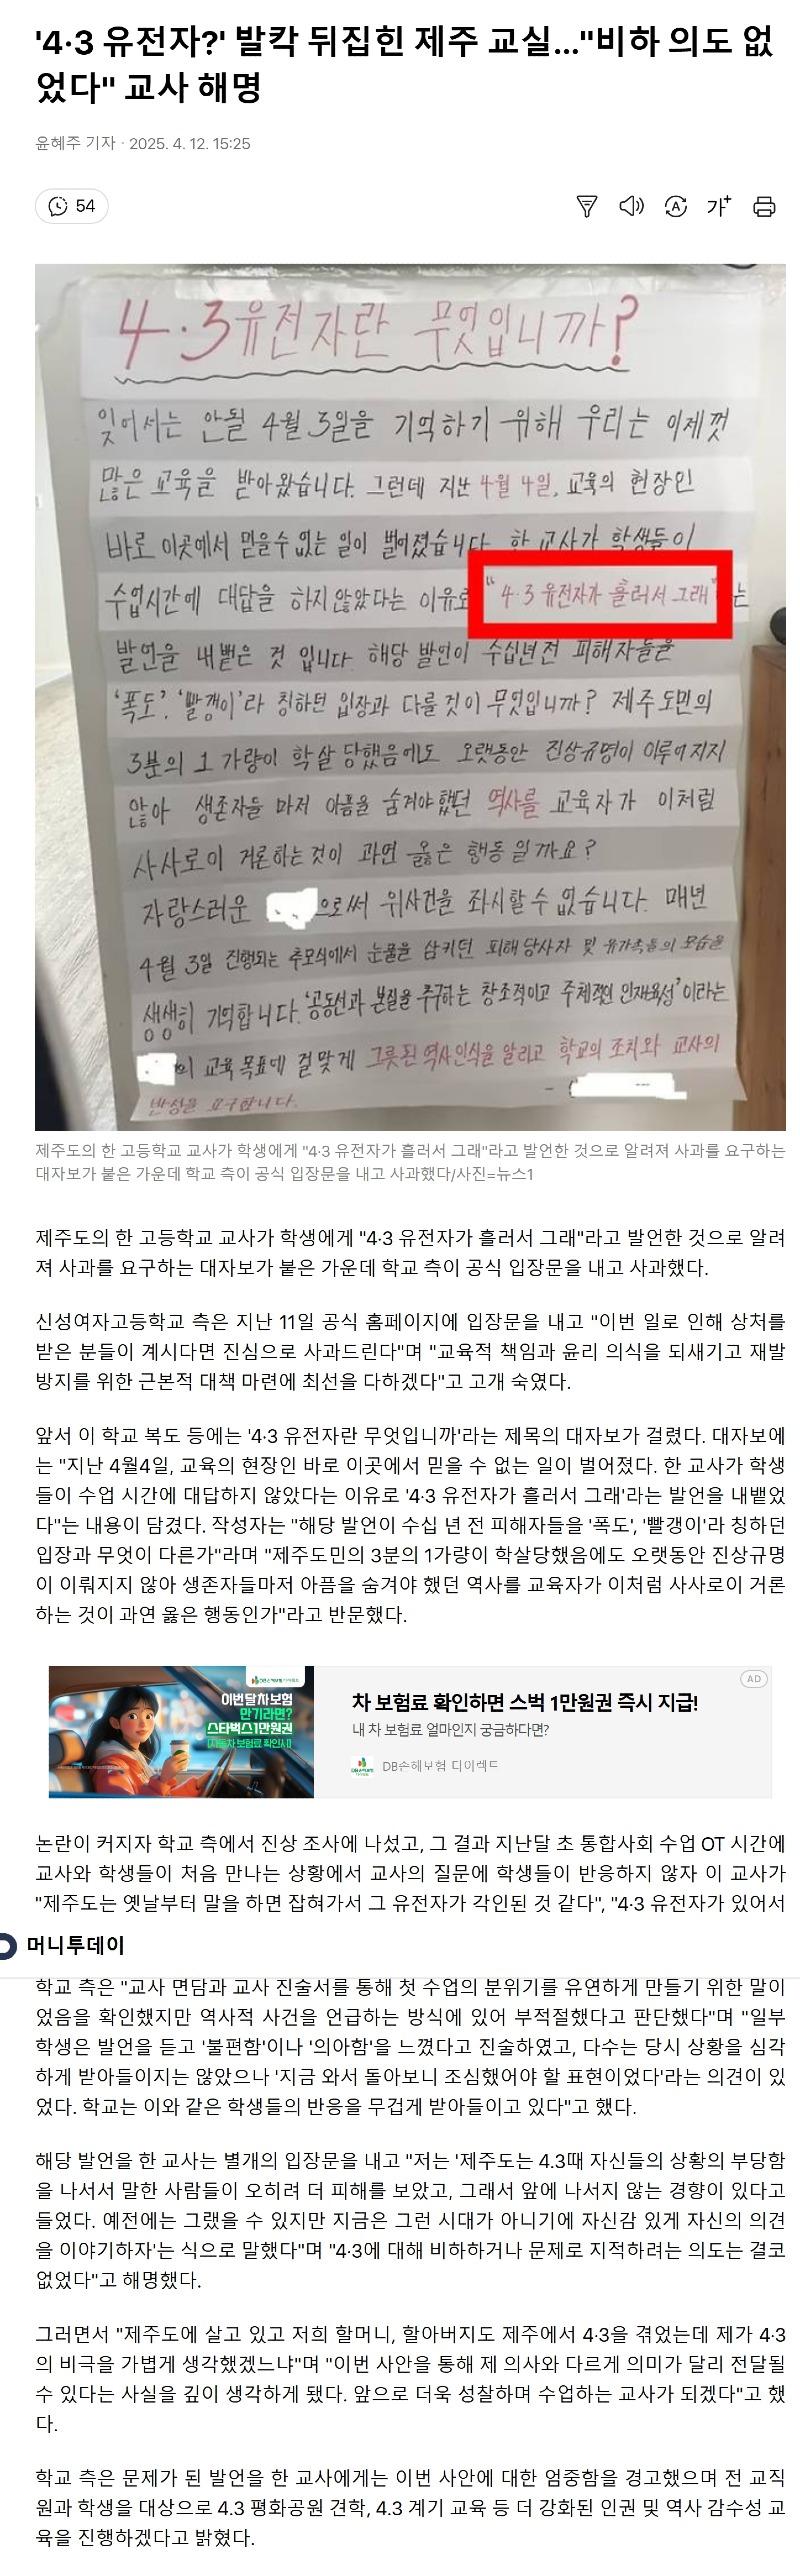 '4·3 유전자?' 발칵 뒤집힌 제주 교실…"비하 의도 없
었다" 교사 해명
윤혜주 기자 · 2025. 4. 12. 15:25
54
가+
4·3유전자란 무엇입니까?
잊어서는 안될 4월 3일을 기억하기 위해 우리는 이제껏
많은 교육을 받아왔습니다. 그런데 지난 4월 4일, 교육의 현장인
바로 이곳에서 믿을 수 없는 일이 벌어졌습니다. 한 교사가 학생들이
수업시간에 대답을 하지 않았다는 이유로 "4·3 유전자가 흘러서 그래"는
발언을 내뱉은 것 입니다. 해당 발언이 수십년 전 피해자들을
'폭도', '빨갱이'라 칭하던 입장과 다를 것이 무엇입니까? 제주도민의
3분의 1 가량이 학살 당했음에도 오랫동안 진상규명이 이루어지지
않아 생존자들 마저 아픔을 숨겨야 했던 역사를 교육자가 이처럼
사사로이 거론하는 것이 과연 옳은 행동 일까요?
자랑스러운 으로써 위사건을 좌시할 수 없습니다. 매년
4월 3일 진행되는 추모식에서 눈물을 삼키던 피해당사자 및 유가족들의 모습을
생생히 기억합니다. '공동선과 본질을 추구하는 창조적이고 주체적인 인재육성'이라는
의 교육 목표에 걸맞게 그릇된 역사인식을 알리고 학교의 조치와 교사의
반성을 요구합니다. -
제주도의 한 고등학교 교사가 학생에게 "4·3 유전자가 흘러서 그래"라고 발언한 것으로 알려져 사과를 요구하는
대자보가 붙은 가운데 학교 측이 공식 입장문을 내고 사과했다/사진=뉴스1
제주도의 한 고등학교 교사가 학생에게 "4·3 유전자가 흘러서 그래"라고 발언한 것으로 알려
져 사과를 요구하는 대자보가 붙은 가운데 학교 측이 공식 입장문을 내고 사과했다.
신성여자고등학교 측은 지난 11일 공식 홈페이지에 입장문을 내고 "이번 일로 인해 상처를
받은 분들이 계시다면 진심으로 사과드린다"며 "교육적 책임과 윤리 의식을 되새기고 재발
방지를 위한 근본적 대책 마련에 최선을 다하겠다"고 고개 숙였다.
앞서 이 학교 복도 등에는 '4·3 유전자란 무엇입니까'라는 제목의 대자보가 걸렸다. 대자보에
는 "지난 4월4일, 교육의 현장인 바로 이곳에서 믿을 수 없는 일이 벌어졌다. 한 교사가 학생
들이 수업 시간에 대답하지 않았다는 이유로 '4·3 유전자가 흘러서 그래'라는 발언을 내뱉었
다"는 내용이 담겼다. 작성자는 "해당 발언이 수십 년 전 피해자들을 '폭도', '빨갱이'라 칭하던
입장과 무엇이 다른가"라며 "제주도민의 3분의 1가량이 학살당했음에도 오랫동안 진상규명
이 이뤄지지 않아 생존자들마저 아픔을 숨겨야 했던 역사를 교육자가 이처럼 사사로이 거론
하는 것이 과연 옳은 행동인가"라고 반문했다.
이번달 차보험
만기라면?
스타벅스1만원권
(자동차 보험료 확인시)
AD
차 보험료 확인하면 스벅 1만원권 즉시 지급!
내 차 보험료 얼마인지 궁금하다면?
DB손해보험 다이렉트
논란이 커지자 학교 측에서 진상 조사에 나섰고, 그 결과 지난달 초 통합사회 수업 OT 시간에
교사와 학생들이 처음 만나는 상황에서 교사의 질문에 학생들이 반응하지 않자 이 교사가
"제주도는 옛날부터 말을 하면 잡혀가서 그 유전자가 각인된 것 같다", "4·3 유전자가 있어서
머니투데이
학교 측은 "교사 면담과 교사 진술서를 통해 첫 수업의 분위기를 유연하게 만들기 위한 말이
었음을 확인했지만 역사적 사건을 언급하는 방식에 있어 부적절했다고 판단했다"며 "일부
학생은 발언을 듣고 '불편함'이나 '의아함'을 느꼈다고 진술하였고, 다수는 당시 상황을 심각
하게 받아들이지는 않았으나 '지금 와서 돌아보니 조심했어야 할 표현이었다'라는 의견이 있
었다. 학교는 이와 같은 학생들의 반응을 무겁게 받아들이고 있다"고 했다.
해당 발언을 한 교사는 별개의 입장문을 내고 "저는 '제주도는 4.3때 자신들의 상황의 부당함
을 나서서 말한 사람들이 오히려 더 피해를 보았고, 그래서 앞에 나서지 않는 경향이 있다고
들었다. 예전에는 그랬을 수 있지만 지금은 그런 시대가 아니기에 자신감 있게 자신의 의견
을 이야기하자'는 식으로 말했다"며 "4·3에 대해 비하하거나 문제로 지적하려는 의도는 결코
없었다"고 해명했다.
그러면서 "제주도에 살고 있고 저희 할머니, 할아버지도 제주에서 4·3을 겪었는데 제가 4·3
의 비극을 가볍게 생각했겠느냐"며 "이번 사안을 통해 제 의사와 다르게 의미가 달리 전달될
수 있다는 사실을 깊이 생각하게 됐다. 앞으로 더욱 성찰하며 수업하는 교사가 되겠다"고 했
다.
학교 측은 문제가 된 발언을 한 교사에게는 이번 사안에 대한 엄중함을 경고했으며 전 교직
원과 학생을 대상으로 4.3 평화공원 견학, 4.3 계기 교육 등 더 강화된 인권 및 역사 감수성 교
육을 진행하겠다고 밝혔다.